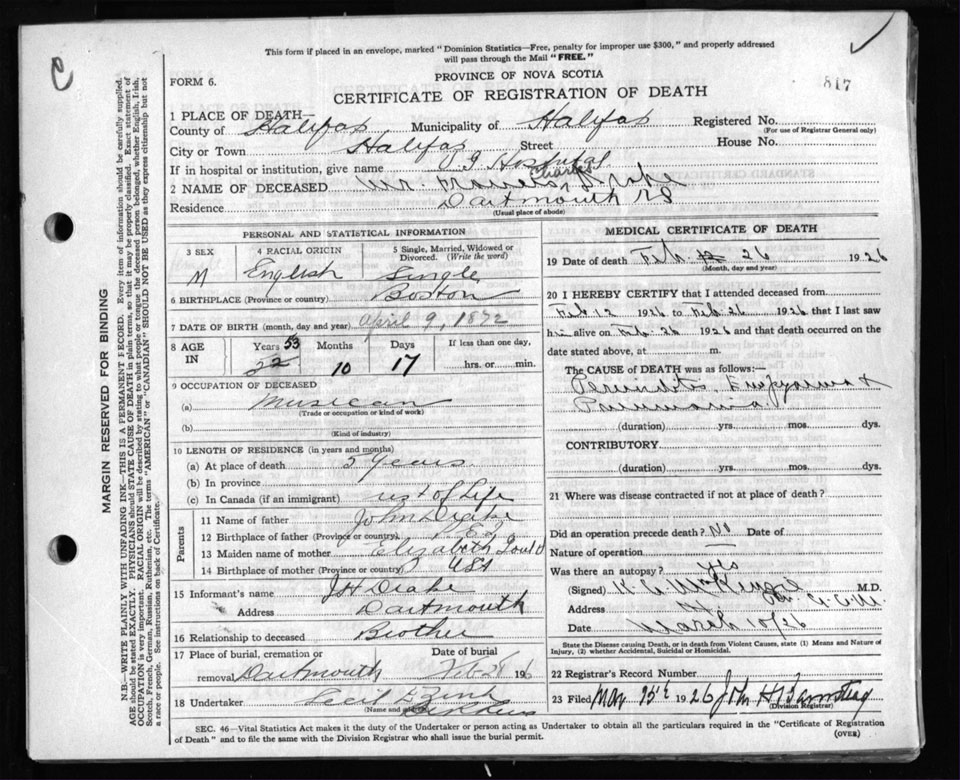 This form if placed in an envelope, marked "Dominion Statistics—Free, penalty for improper use $300," and properly addressed
will pass through the Mail "FREE."
PROVINCE OF NOVA SCOTIA
FORM 6.
CERTIFICATE OF REGISTRATION OF DEATH
817
1 PLACE OF DEATH—
County of Halifax Municipality of Halifax Registered No.
(For use of Registrar General only)
City or Town Halifax Street House No.
If in hospital or institution, give name V G Hospital
Charles
2 NAME OF DECEASED Mr. Francis Drake
Residence Dartmouth NS
(Usual place of abode)
PERSONAL AND STATISTICAL INFORMATION
3 SEX 4 RACIAL ORIGIN 5 Single, Married, Widowed or Divorced. (Write the word)
M English Single
6 BIRTHPLACE (Province or country) Boston
7 DATE OF BIRTH (month, day and year) April 9, 1872
8 AGE IN Years 53 Months 10 Days 17 If less than one day, hrs. or min.
9 OCCUPATION OF DECEASED
(a) Musician
(Trade or occupation or kind of work)
(b)
(Kind of industry)
10 LENGTH OF RESIDENCE (in years and months)
(a) At place of death 5 years
(b) In province
(c) In Canada (if an immigrant) rest of life
Parents
11 Name of father John Drake
12 Birthplace of father (Province or country) P E I
13 Maiden name of mother Elizabeth Gould
14 Birthplace of mother (Province or country) USA
15 Informant's name J H Drake
Address Dartmouth
16 Relationship to deceased Brother
17 Place of burial, cremation or removal Dartmouth Date of burial Feb 28 1926
18 Undertaker Cecil E Zink
(Name and address)
MEDICAL CERTIFICATE OF DEATH
19 Date of death Feb. 26 1926
(Month, day and year)
20 I HEREBY CERTIFY that I attended deceased from
Feb 12 1926 to Feb 26 1926 that I last saw
him alive on Feb 26 1926 and that death occurred on the
date stated above, at m.
The CAUSE OF DEATH was as follows:—
Empyema &
Pneumonia
(duration) yrs. mos. dys.
CONTRIBUTORY
(duration) yrs. mos. dys.
21 Where was disease contracted if not at place of death?
Did an operation precede death? No Date of
Nature of operation —
Was there an autopsy? yes
(Signed) K. McKenzie M.D.
Address
Date March 10/26
State the Disease causing Death, or in death from Violent Causes, state (1) Means and Nature of
Injury, (2) whether Accidental, Suicidal or Homicidal.
22 Registrar's Record Number
23 Filed Mar 15th 1926 John H
(Division Registrar)
SEC. 46—Vital Statistics Act makes it the duty of the Undertaker or person acting as Undertaker to obtain all the particulars required in the "Certificate of Registration
of Death" and to file the same with the Division Registrar who shall issue the burial permit.
(OVER)
MARGIN RESERVED FOR BINDING
N.B.—WRITE PLAINLY WITH UNFADING INK—THIS IS A PERMANENT RECORD. Every item of information should be carefully supplied.
AGE should be stated EXACTLY. PHYSICIANS should STATE CAUSE OF DEATH in plain terms, so that it may be properly classified. Exact statement of
OCCUPATION is very important. RACIAL ORIGIN will be described by stating to what people or tongue the deceased person belonged, whether English, Irish,
Scotch, French, German, Russian, Ruthenian, etc. The terms "AMERICAN" or "CANADIAN" SHOULD NOT BE USED as they express citizenship but not
a race or people. See instructions on back of Certificate.